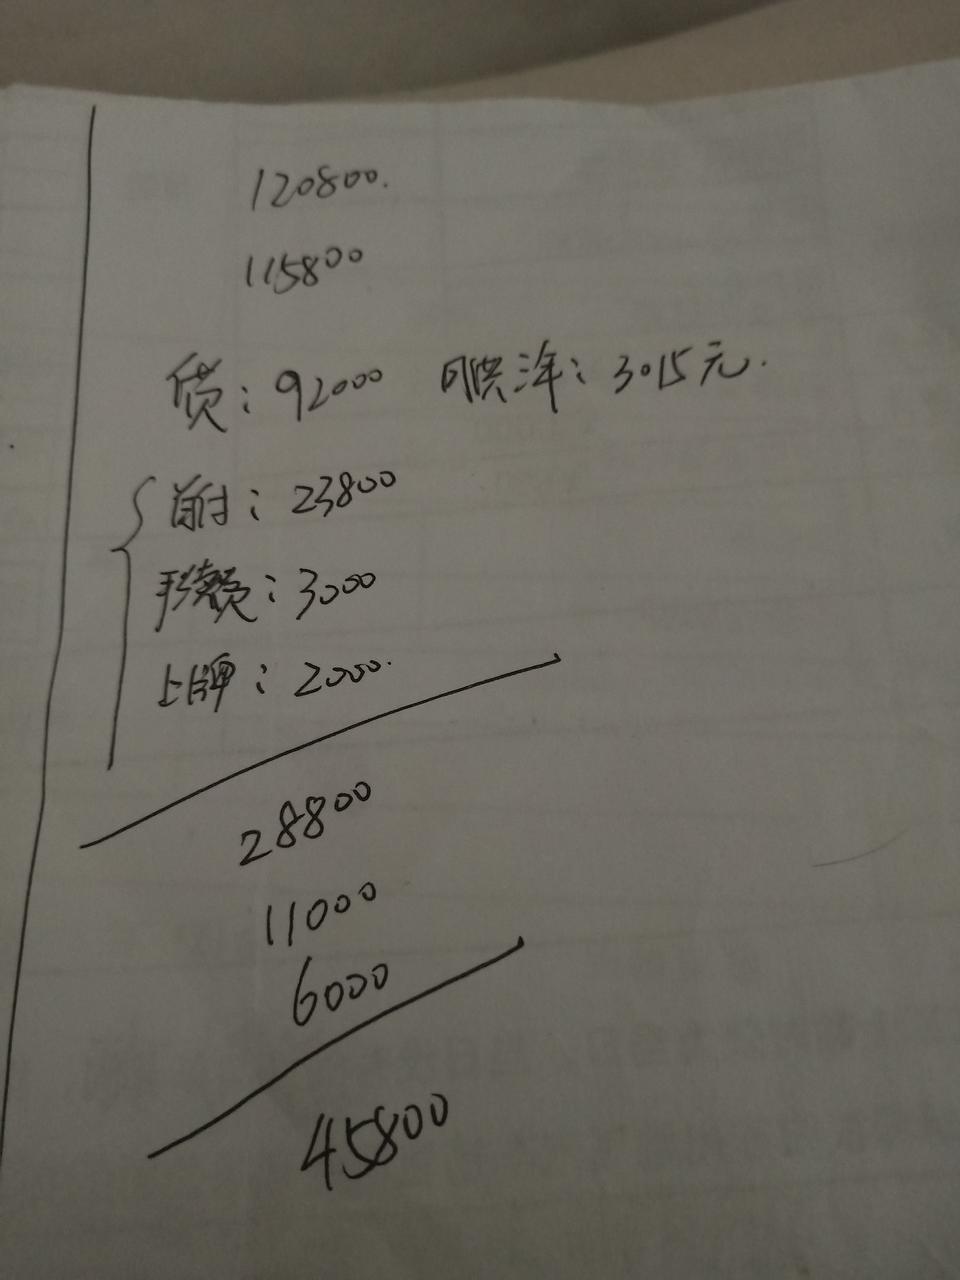 120800.
115800
贷：92000 月供三年：3015元.
首付：23800
手续费：3000
上牌：2000.
28800
11000
6000
45800